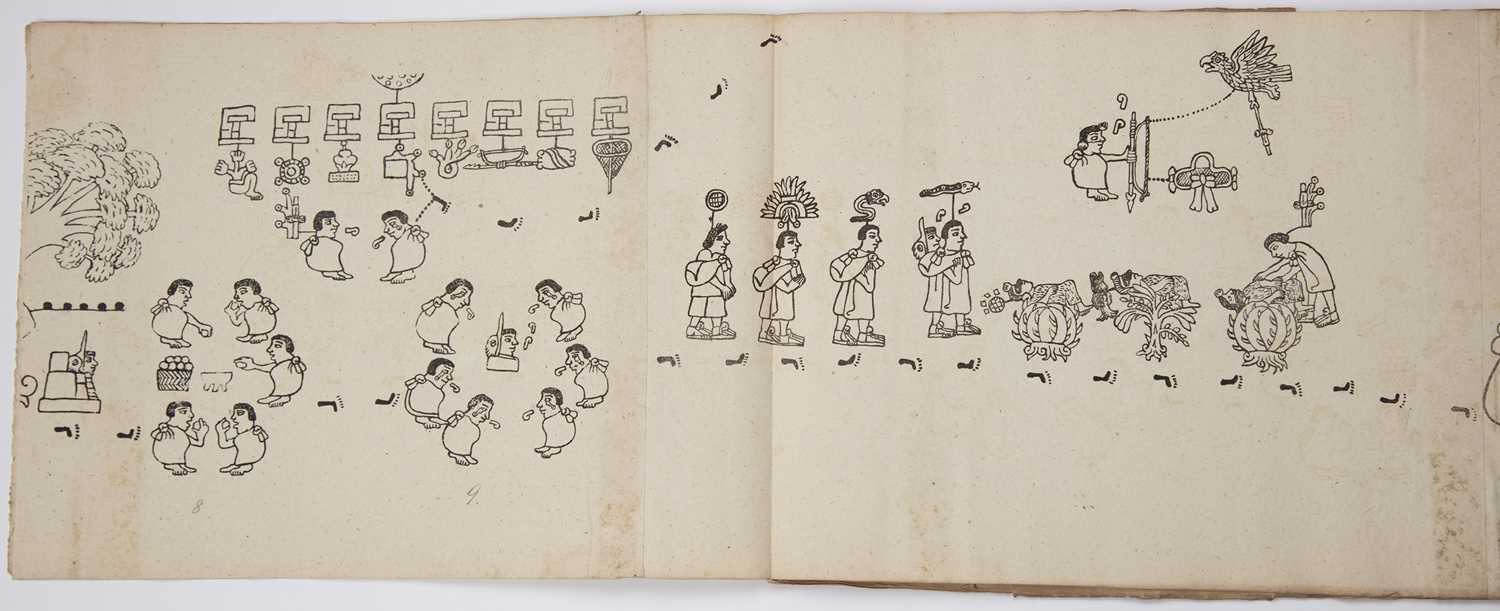 8
9.